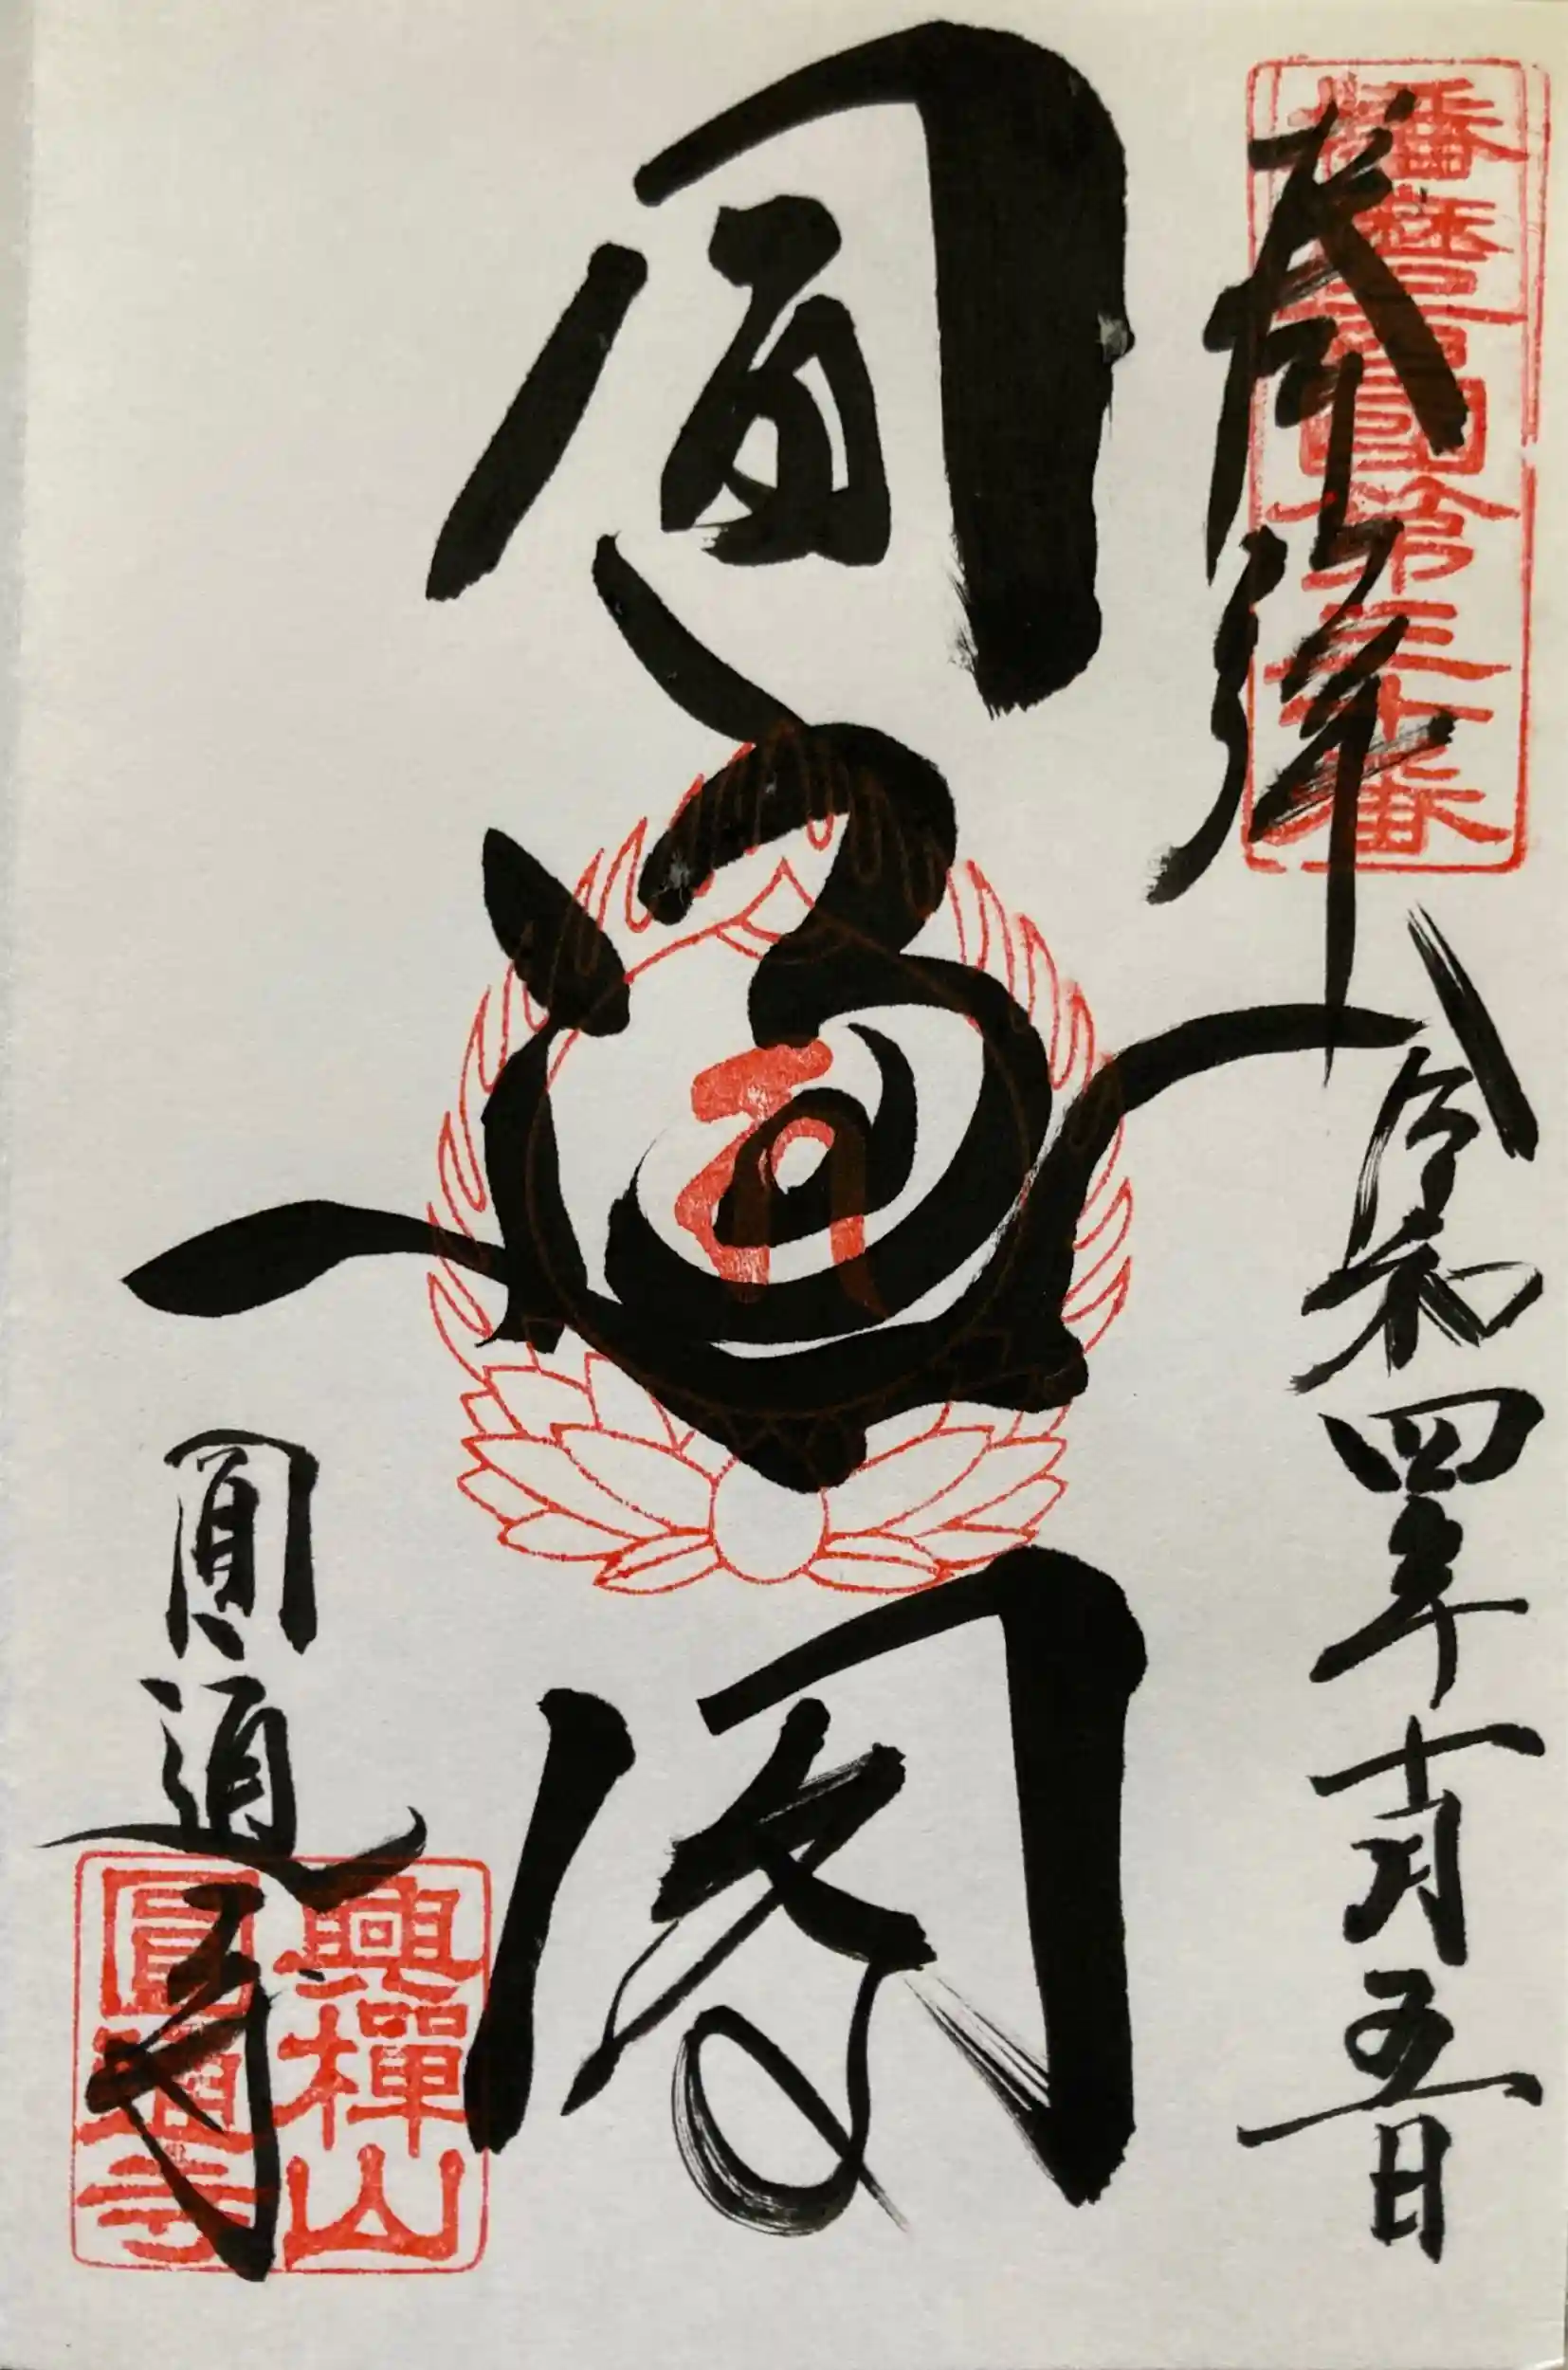 播磨西國第三十番
奉拝
令和四年十月五日
圓通閣
圓通寺
興禪山
圓通寺